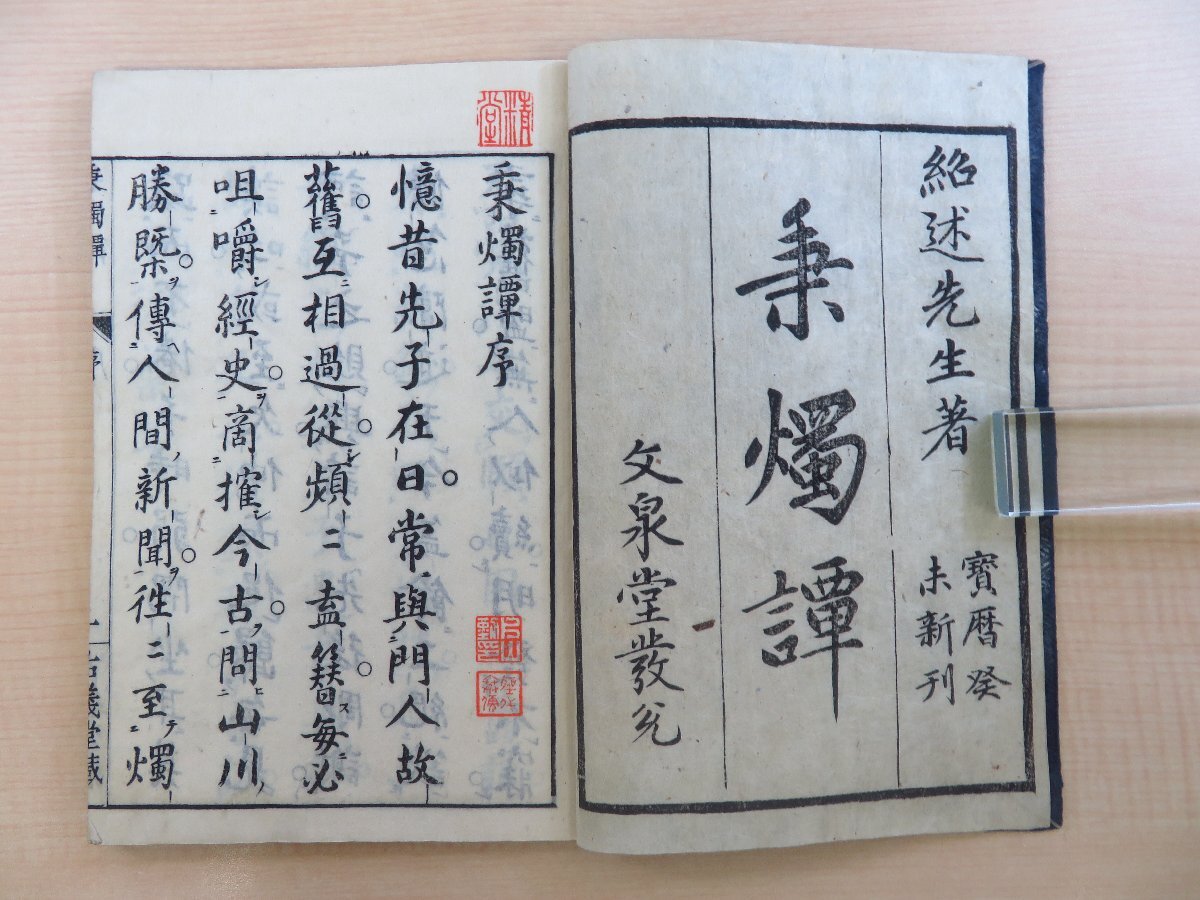 紹述先生著
寶暦癸
未新刊
秉燭譚
文泉堂發兌
秉燭譚序
憶昔先子在日常與門人故
舊互相過從頻二盍簪每必
咀嚼經史商搉今古問山川
勝槩傳人間新聞徃二至燭
秉燭譚
序
古義堂藏